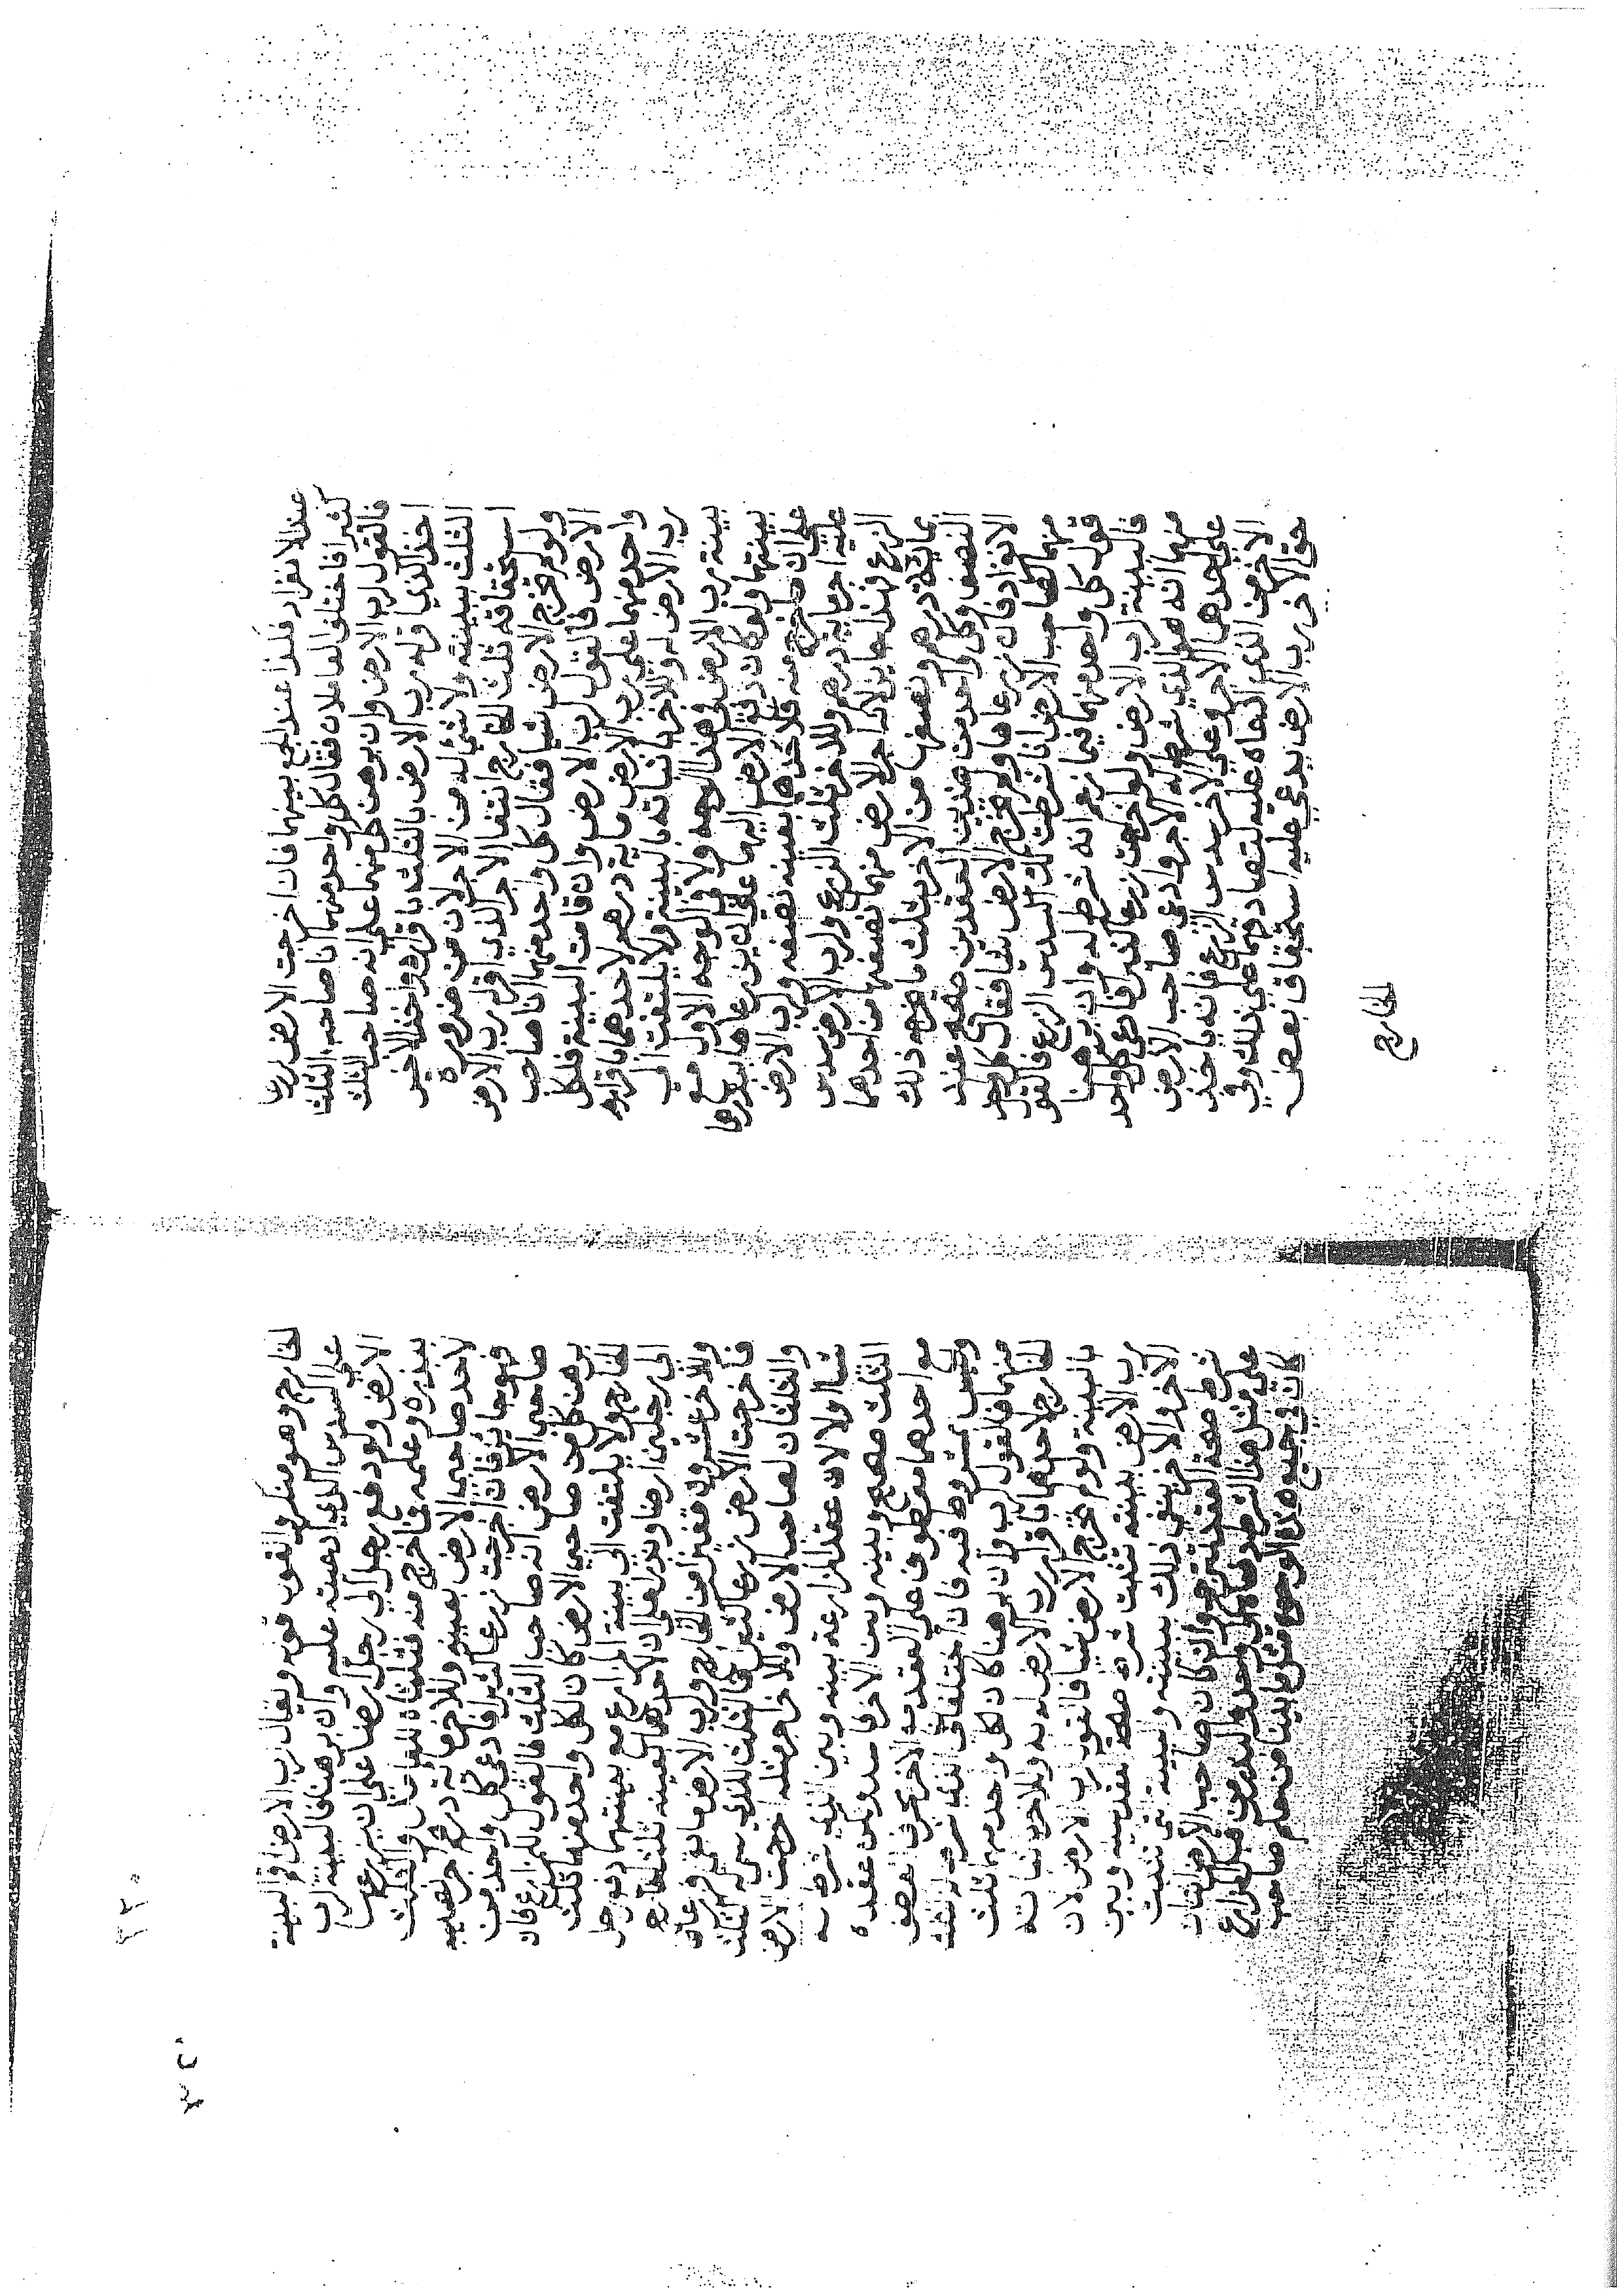 عند الانفراد فكذا عند الجمع بينهما فان اخرجت الارض زرعا
كثيرا فاختلفوا العاملان فقال كل واحد منهما انا صاحب الثلث
فالقول لرب الارض وان برهن كل منهما على انه صاحب الثلث
اخذ الذي اقر له رب الارض بالثلث باقراره واخذ الاخر
الثلث ببينته ولا شئ له من الاجر لان من ضرورة
استحقاقه ثلث الخارج انتفا الاجر الذي اقر له رب الارض
ولو لم تخرج الارض شيا فقال كل واحد منهما انا صاحب
الارض فالقول لرب الارض وان قامت البينة فلكل
واحد منهما على رب الارض ماية درهم لاحدهما باقراره
رب الارض له وللاخر باثباته بالبينة ولا يلتفت الى
بينة رب الارض في هذا الوجه ولا في الوجه الاول مع
بينتهما ولو كان دفع الارض اليهما على ان يزرعاها ببذرهما
على ان ما خرج منه فلاحدهما بعينه نصفه ولرب الارض
عليه اجر ماية درهم وللاخر ثلث الزرع ولرب الارض سدس
الزرع فهذا جايز لانه اجر الارض منهما نصفها من احدهما
بماية درهم ونصفها من الاخر بثلث ما يخرجه ذلك
النصف وكل واحد من هذين العقدين صحيح عند
الانفراد فان زرعاها ولم تخرج الارض شيا فقال كل واحد
منهما لصاحب الارض انا شرطت لك السدس الزرع فالقول
قول كل واحد منهما فيما زعم انه شرط له وان برهنا
فالبينة لرب الارض ولو اخرجت زرعا كثيرا فادعى كل واحد
منهما انه هو الذي شرط له الاجر وادعى صاحب الارض
على احدهما الاجر وعلى الاخر سدس الزرع فانه ياخذ
الاجر من الذي ادعاه عليه لتصادقهما على ذلك وفي
حق الاخر رب الارض يدعي عليه استحقاق بعض
الخارج
الخارج وهو منكر والقول قوله ويقال لرب الارض اقم البينة
على السدس الذي ادعيت عليه وان برهنا فالبينة لرب
الارض ولو دفع رجل الى رجل ارضا على ان يزرعها
ببذره وعمله فما خرج منه فثلثاه للعامل والثلث
لاحد صاحبي الارض بعينه وللاخر ماية درهم اجر نصيبه
فهو جايز فان اخرجت زرعا كثيرا فادعى كل واحد من
صاحبي الارض انه صاحب الثلث فالقول للمزارع فان
برهن كل من صاحبي الارض كان لكل واحد منهما ثلث
الخارج ولا يلتفت الى بينة المزارع مع بينتهما ولو دفع رجل
الى رجلين ارضا وبذرا على ان لاحدهما بعينه ثلث الخارج
وللاخر عشرون قفيزا من الخارج ولرب الارض ما بقي فزرعاها
فاخرجت الارض زرعا كثيرا فالثلث للذي سمى له الثلث
والثلثان لصاحب الارض وللاخر اجر مثله اخرجت الارض
شيا اولا لان عقد المزارعة بينه وبين الذي شرط له
الثلث صحيح وبينه وبين الاخر فاسد ولكن عقده
مع احدهما معطوف على العقد مع الاخر بحرف العطف
وليس مشروط فيه فان اختلفا في الذي شرط له الثلث
منهما فالقول لرب وان برهنا كان لكل واحد منهما ثلث
الخارج لاحدهما باقرار رب الارض له به وللاخر باثباته
بالبينة ولو لم تخرج الارض شيا فالقول رب الارض لان
رب الارض ببينته تثبت شرط صحة العقد بينه وبين
الاخر والاخر ينفي ذلك ببينته والبينة التي تثبت
شرط صحة العقد تترجح وان كان صاحب الارض اثنان
على مثل هذا الشرط والعامل واحد والبذر من قبل المزارع
كان في جميع هذه الوجوه مثل ما بينا من حكم صاحب